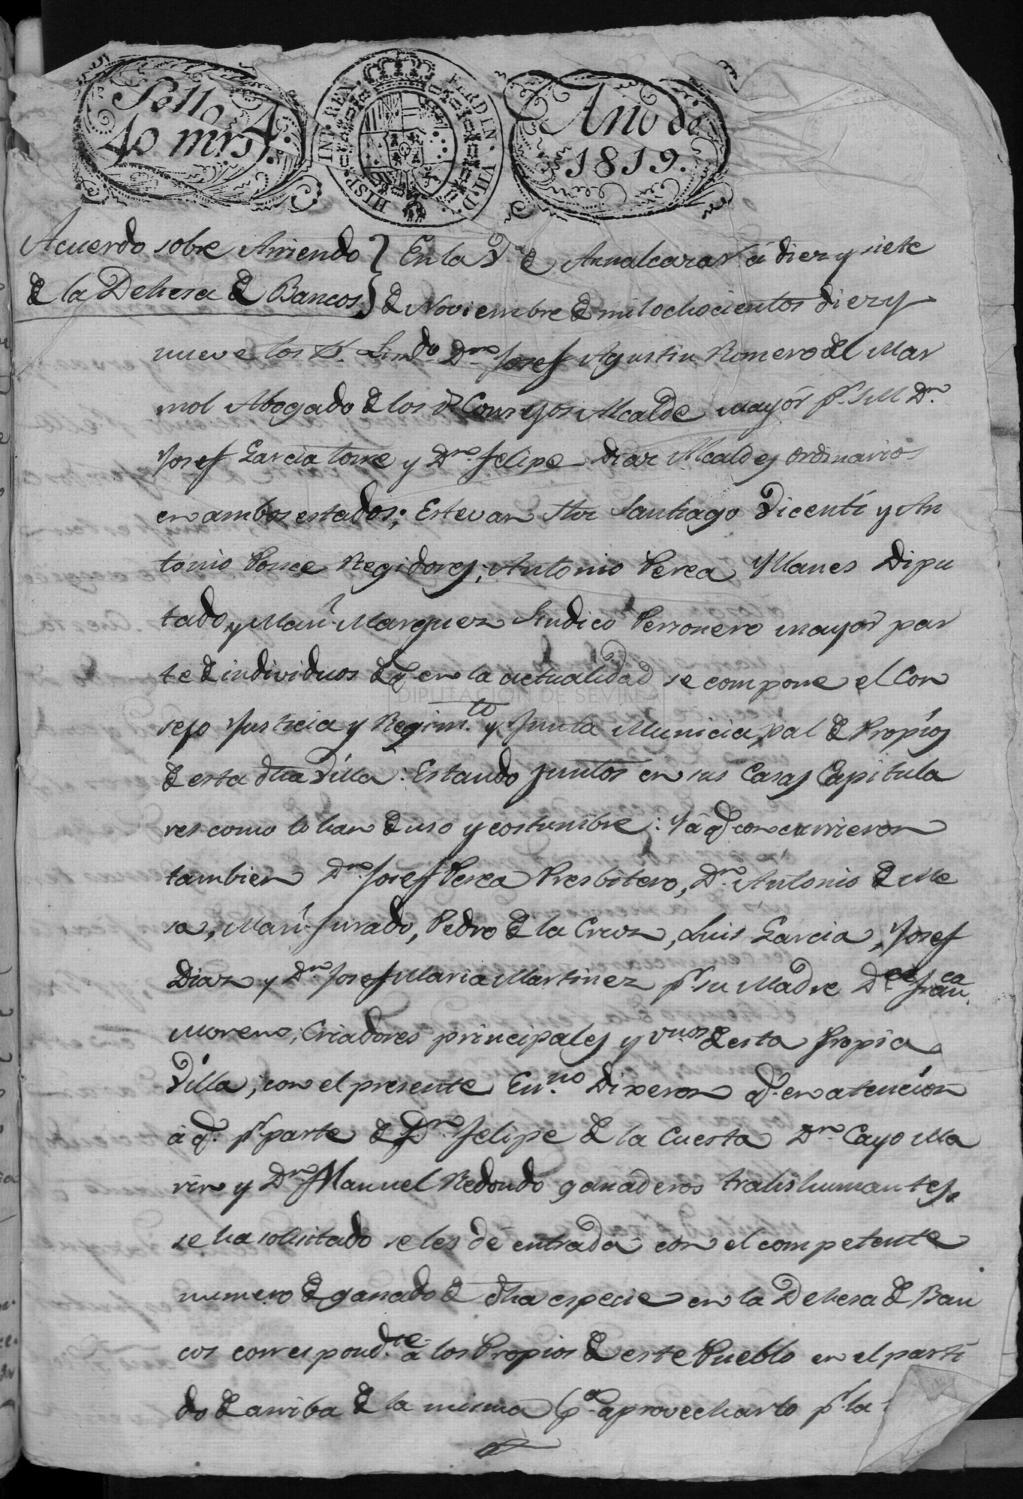 Sello 4º 40 mrs
HISP. IND. REX FERDIN. VII. D. G.
Año de 1819.
Acuerdo sobre Arriendo
de la Dehesa de Bancos
En la Vª de Aznalcazar á diez y siete
de Noviembre de mil ochocientos diez y
nueve los SS. Licdo. Dn. Josef Agustin Romero del Mar
mol Abogado de los Rs Consejos Alcalde mayor pr. S.M. Dn.
Josef Garcia torre y Dn. Felipe Diaz Alcaldes ordinarios
en ambos estados; Estevan Santiago Vicenti y An
tonio Ponce Regidores; Antonio Perea Yllanes Dipu
tado, y Manl. Marquez Sindico Perronero mayor par
te de individuos de q. en la actualidad se compone el Con
sejo Justicia y Regimto. y Junta Municipal de Propios
de esta dha Villa. Estando juntos en sus Casas Capitula
res como lo han de uso y costumbre: Y á q. concurrieron
tambien Dn. Josef Perea Presbitero, Dn. Antonio de Me
sa, Manl. Jurado, Pedro de la Cruz, Luis Garcia, Josef
Diaz y Dn. Josef Maria Martinez pr. su Madre Da. Franca.
Moreno; Criadores principales y vnos de esta propia
Villa; con el presente Esno. Dixeron q. en atención
á q. pr. parte de Dn. Felipe de la Cuesta Dn. Cayo Ma
rin y Dn. Manuel Redondo ganaderos trashumantes,
se ha solicitado se les dé entrada con el competente
numero de ganado de dha especie en la Dehesa de Ban
cos correspondte. á los Propios de este Pueblo en el parti
do de arriba de la misma pa. aprovecharlo pr. la
DIPUTACIÓN DE SEVILLA